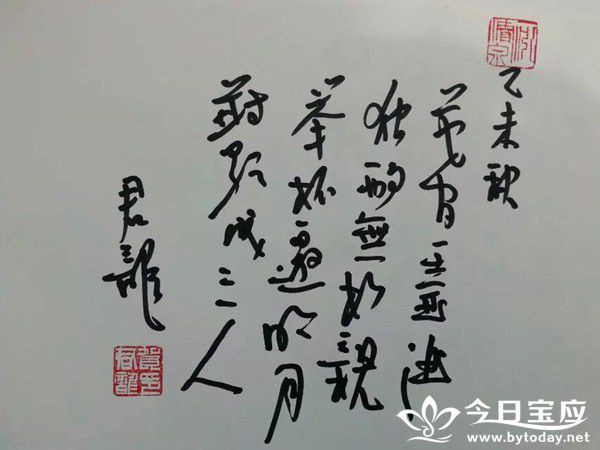 乙未秋
花間一壺酒
獨酌無相親
举杯邀明月
對影成三人
君龍
今日宝应
www.bytoday.net